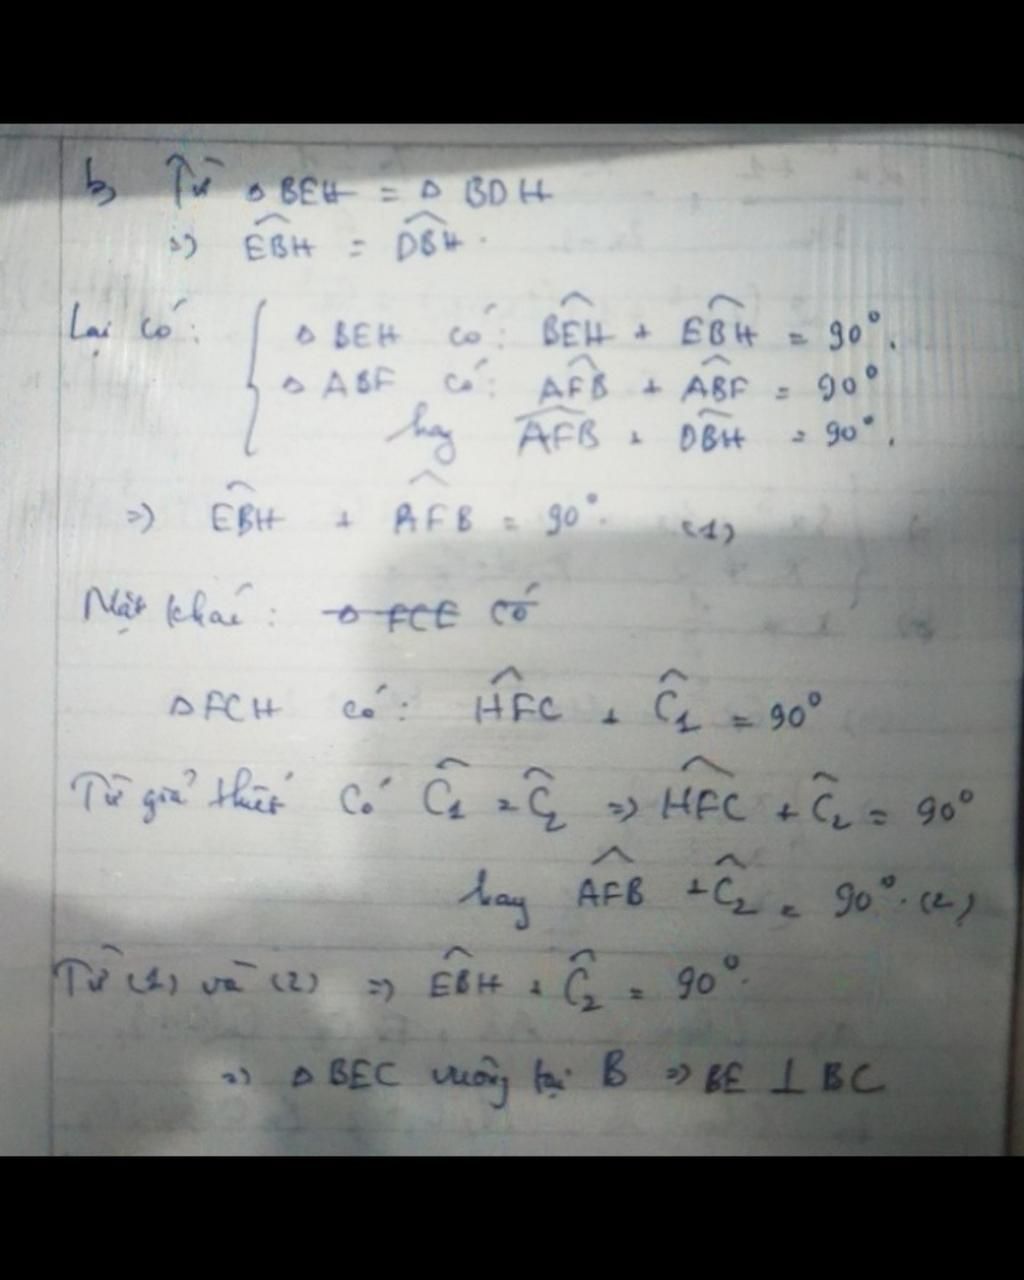 b, Từ Δ BEH = Δ BDH
=> \widehat{EBH} = \widehat{DBH}.
Lại có: { Δ BEH có: \widehat{BEH} + \widehat{EBH} = 90°.
Δ ABF có: \widehat{AFB} + \widehat{ABF} = 90°
hay \widehat{AFB} + \widehat{DBH} = 90°.
=> \widehat{EBH} + \widehat{AFB} = 90°. (1)
Mặt khác: Δ FCE có
Δ FCH có: \widehat{HFC} + \widehat{C}_1 = 90°
Từ giả thiết có \widehat{C}_1 = \widehat{C}_2 => \widehat{HFC} + \widehat{C}_2 = 90°
hay \widehat{AFB} + \widehat{C}_2 = 90°. (2)
Từ (1) và (2) => \widehat{EBH} + \widehat{C}_2 = 90°.
=> Δ BEC vuông tại B => BE ⊥ BC